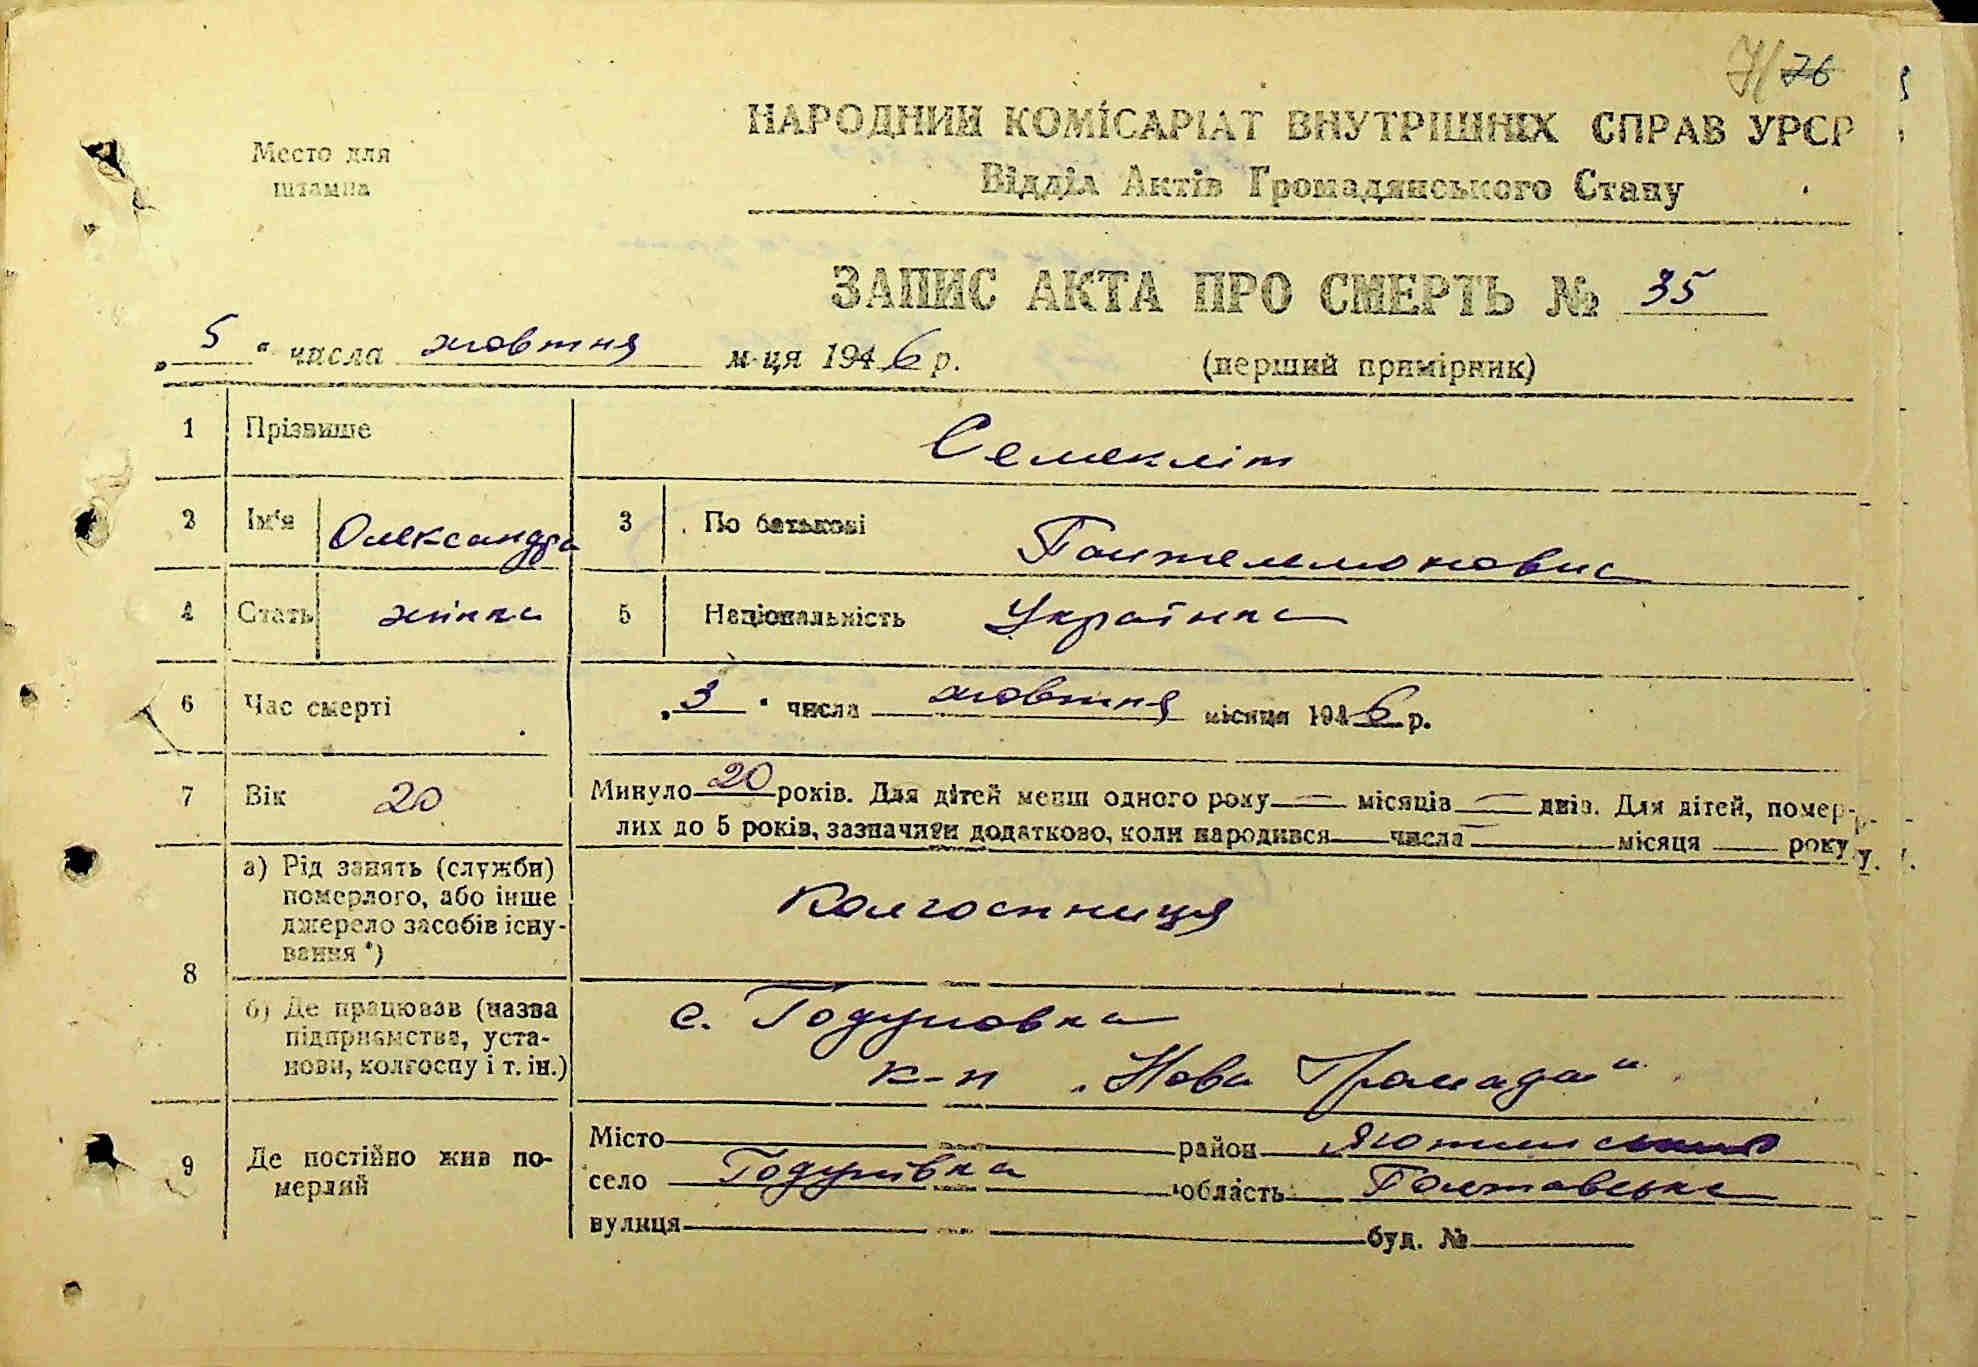 71 26
Место для
штампа
НАРОДНИЙ КОМІСАРІАТ ВНУТРІШНІХ СПРАВ УРСР
Відділ Актів Громадянського Стану
ЗАПИС АКТА ПРО СМЕРТЬ № 35
„5“ числа жовтня м-ця 1946 р. (перший примірник)
1 Прізвище Семекліт
2 Ім'я Олександра 3 По батькові Пантелимоновна
4 Стать жінка 5 Національність Українка
6 Час смерті „3“ числа жовтня місяця 1946 р.
7 Вік 20 Минуло 20 років. Для дітей менш одного року — місяців — днів. Для дітей, помер-
лих до 5 років, зазначити додатково, коли народився — числа — місяця — року
8 а) Рід занять (служби)
померлого, або інше
джерело засобів існу-
вання *)
Колгоспниця
б) Де працював (назва
підприємства, уста-
нови, колгоспу і т. ін.)
с. Годуновка
к-п „Нова Громада“
9 Де постійно жив по-
мерлий
Місто район Яготинский
село Годунівка область Полтавська
вулиця буд. №